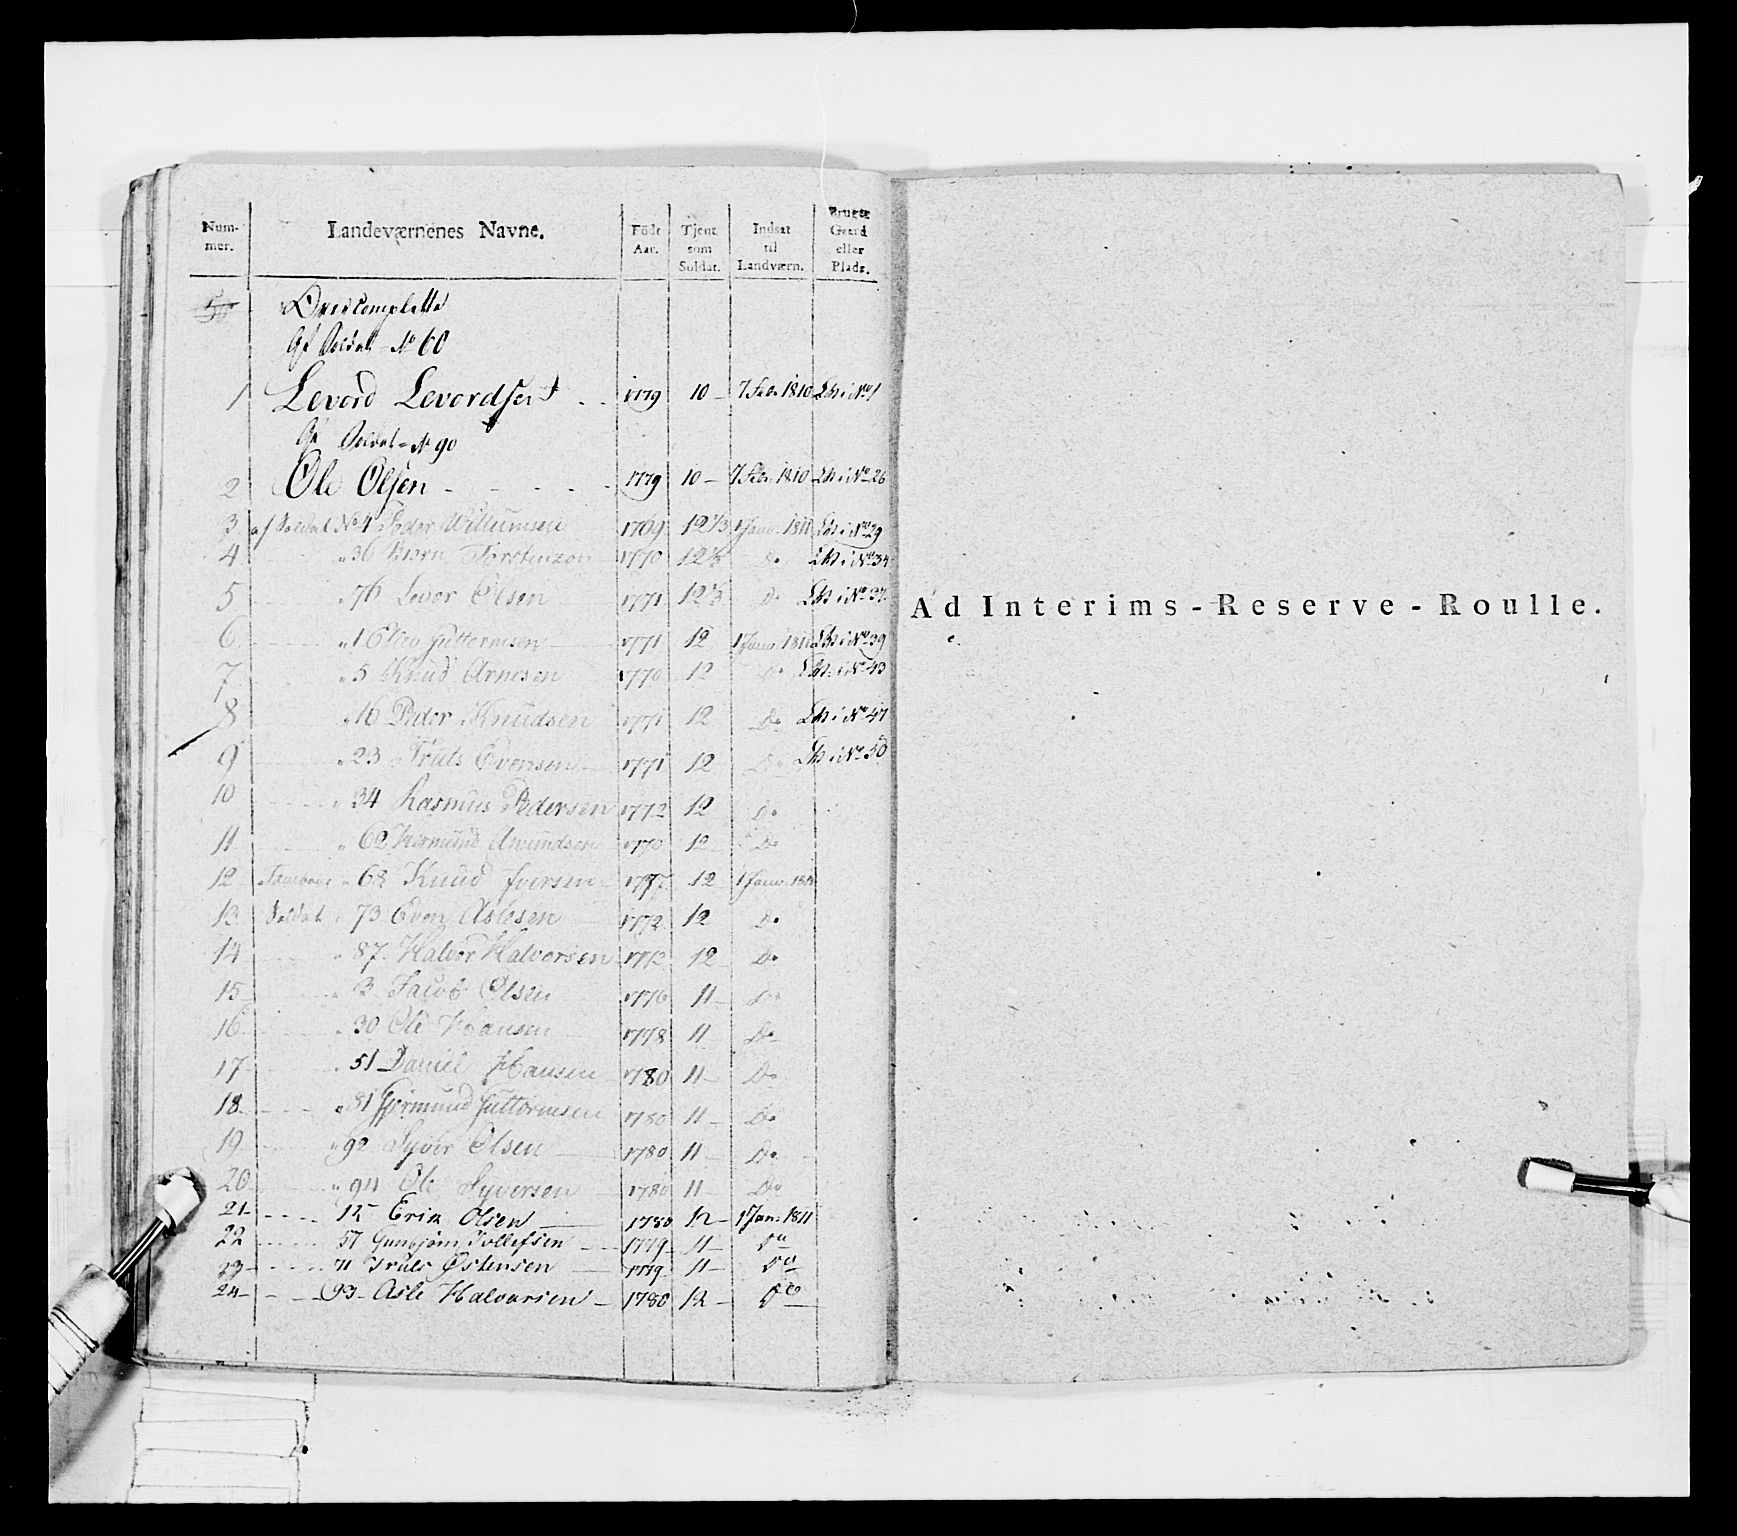 Num- mer. Landeværnenes Navne. Föde Aar. Tjent som Soldat. Indsat til Landværn. Brugte Gaard eller Plads.
Overcomplette
Af Soldat No 60
1 Levord Levordsen 1779 10 7 Feb. 1810 No 1
Af Soldat No 90
2 Ole Olsen 1779 10 7 Feb. 1810 No 26
3 af Soldat No 4 Peder Willumsen 1769 12 1/3 1 Janv. 1811 No 29
4 " 36 Biørn Torstensøn 1770 12 1/3 Do No 34
5 " 76 Levor Olsen 1771 12 1/3 Do No 37
6 " 1 Guttormsen 1771 12 1 Janv. 1811 No 39
7 " 5 Knud Arnesen 1770 12 Do No 43
8 " 16 Peder Knudsen 1771 12 Do No 47
9 " 23 Truls Evensen 1771 12 Do No 50
10 " 34 Rasmus Pedersen 1772 12 Do
11 " 62 Amundsen 1770 12 Do
12 Tambour " 63 Knud Iversen 1777 12 1 Janv. 1811
13 Soldat " 73 Even Aslesen 1772 12 Do
14 " 87 Halvor Halvorsen 1772 12 Do
15 " 3 Jacob Olsen 1776 11 Do
16 " 30 Ole Hansen 1778 11 Do
17 " 51 Daniel Hansen 1780 11 Do
18 " 81 Guttormsen 1780 11 Do
19 " 92 Syver Olsen 1780 11 Do
20 " 94 Ole Syversen 1780 11 Do
21 12 Erik Olsen 1780 12 1 Jan. 1811
22 57 Gunbjørn Tollefsen 1779 11 Do
23 71 Truls Østensen 1779 11 Do
24 93 Asle Halvorsen 1780 12 Do
Ad Interims-Reserve-Roulle.